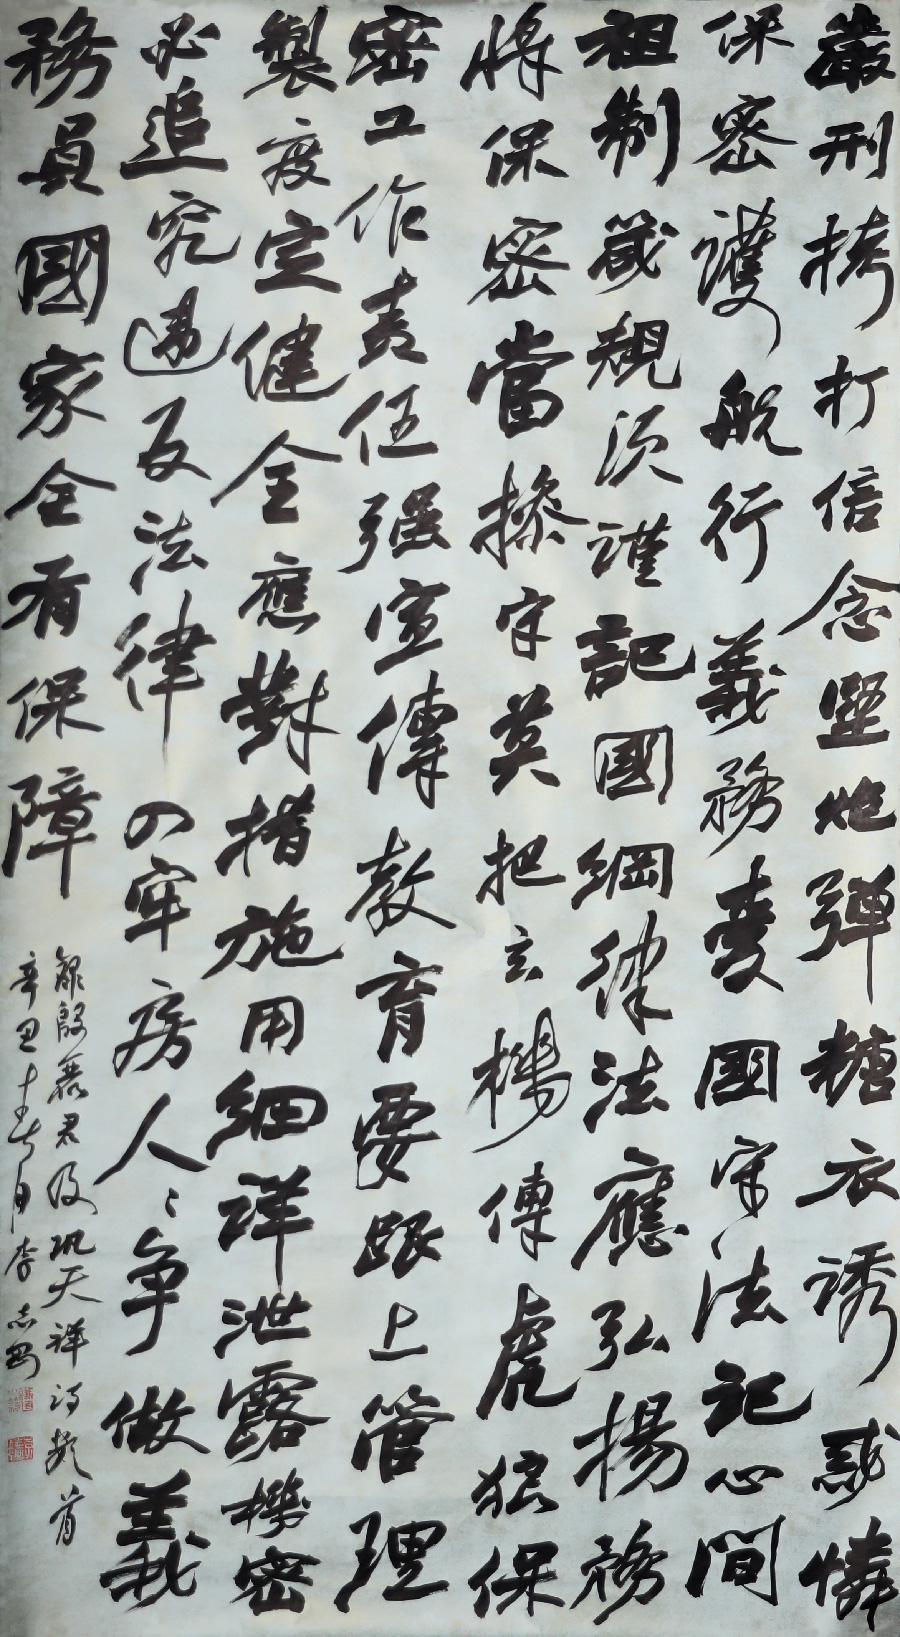 嚴刑拷打信念堅炮彈糖衣誘感憐
保密護航行義務愛國守法記心間
祖制箴規須謹記國綱律法應弘揚務
將保密當操守莫把玄機傳虎狼保
密工作责任强宣傳教育要跟上管理
製度定健全應對措施用細詳泄露機密
必追究違反法律の牢房人〻争做義
務員國家全有保障
錄殷 君及巩天祥詩 首
辛丑十 月李志